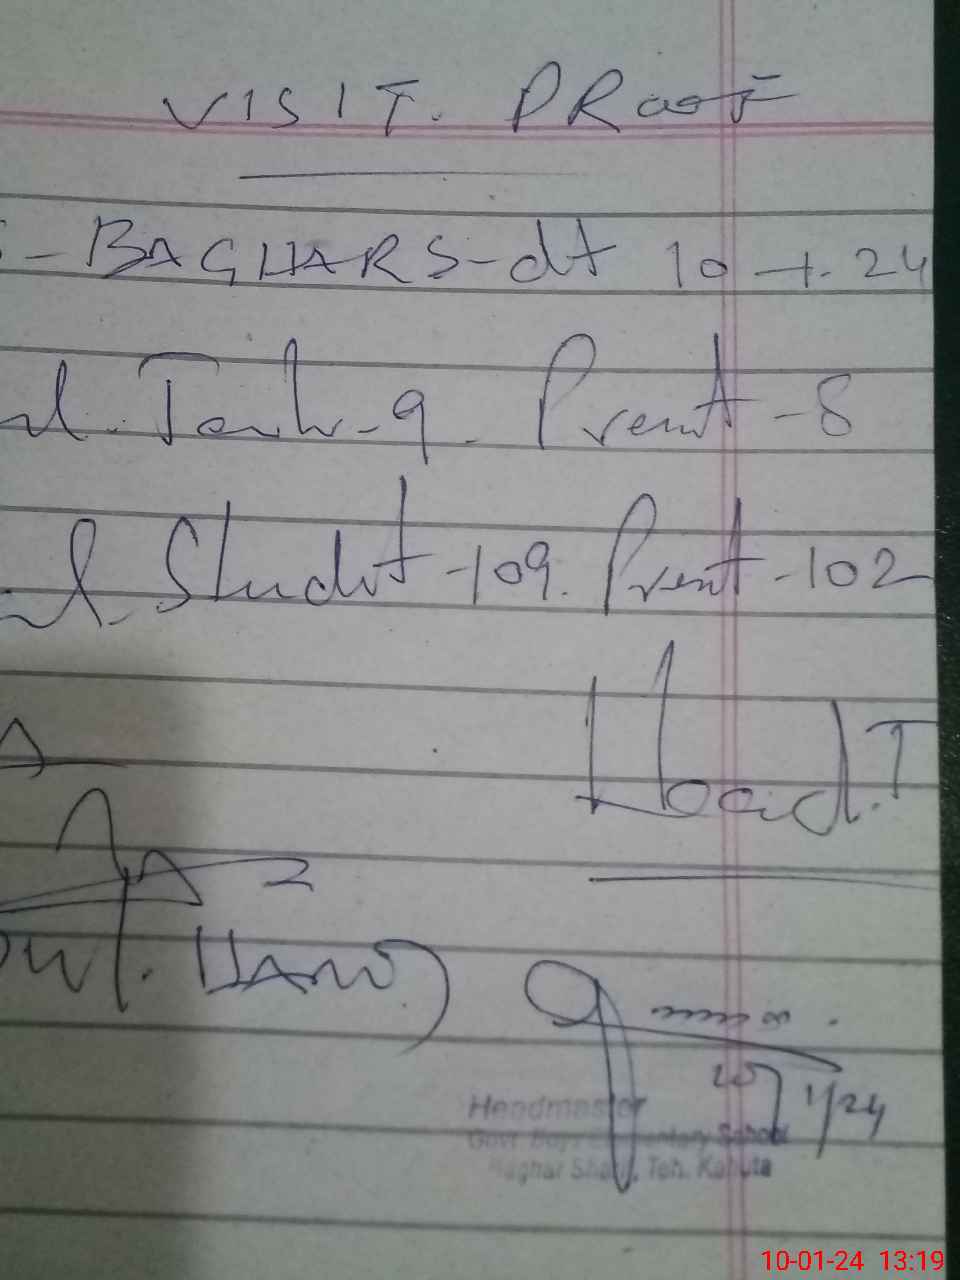 VISIT. PRooF
- BAGHARS - dt 10-1-24
Teach - 9. Present - 8
Student - 109. Present - 102
Head.T
10/1/24
Headmaster
Govt. Boys Elementary School
Baghar Sharif, Teh. Kahuta
10-01-24 13:19